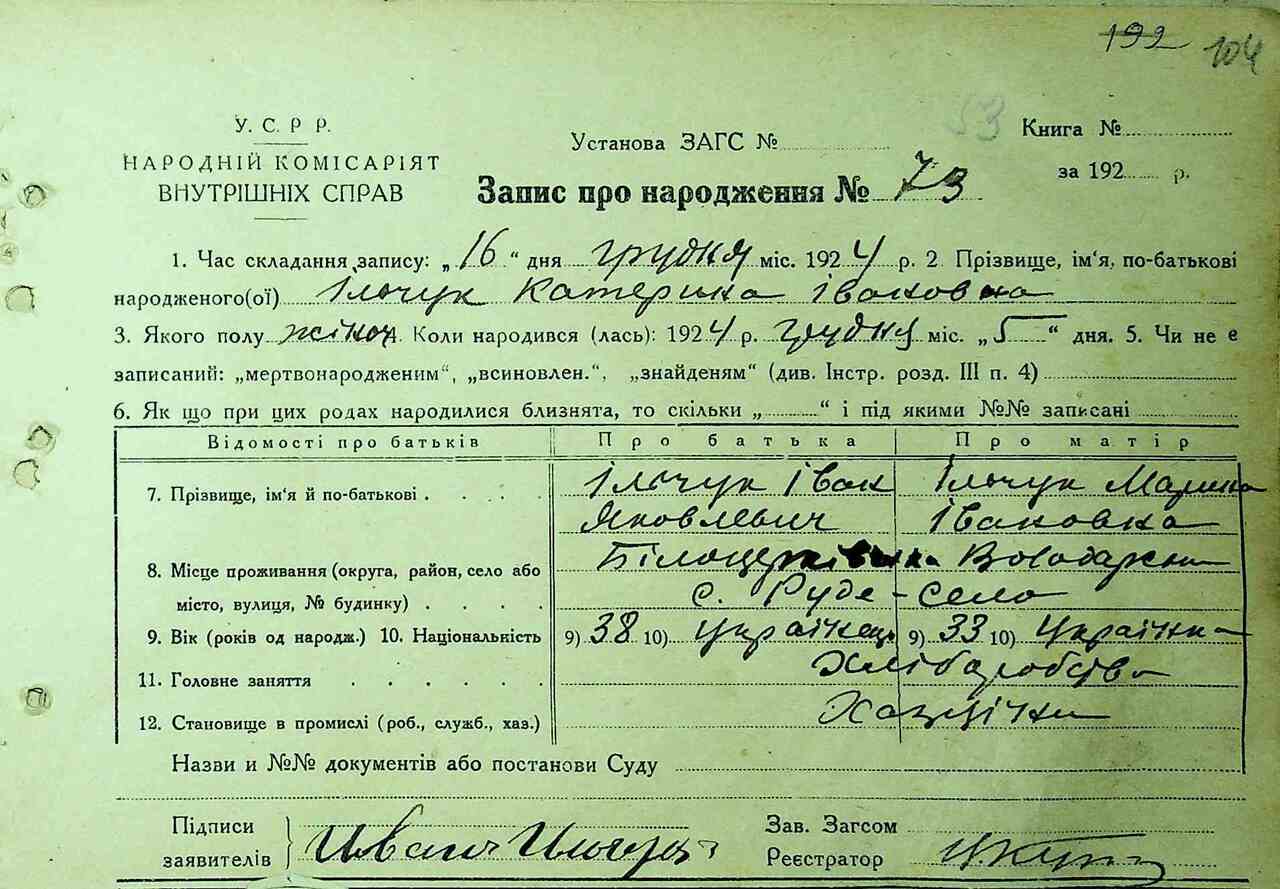 192 104
53
У. С. Р Р.
НАРОДНІЙ КОМІСАРІЯТ
ВНУТРІШНІХ СПРАВ
Установа ЗАГС №
Книга №
за 192 р.
Запис про народження № 73
1. Час складання запису: „ 16 “ дня грудня міс. 1924 р. 2. Прізвище, ім'я, по-батькові
народженого(ої) Ільчук Катерина Івановна
3. Якого полу жіноч. Коли народився (лась): 1924 р. грудня міс. „ 5 “ дня. 5. Чи не є
записаний: „мертвонародженим“, „всиновлен.“, „знайденям“ (див. Інстр. розд. III п. 4)
6. Як що при цих родах народилися близнята, то скільки „ “ і під якими №№ записані
Відомості про батьків Про батька Про матір
7. Прізвище, ім'я й по-батькові . . . . Ільчук Іван Ільчук Марина
Яковлевич Івановна
8. Місце проживання (округа, район, село або Білоцерківська Володарськ
місто, вулиця, № будинку) . . . . с. Руде-село
9. Вік (років од народж.) 10. Національність 9) 38 10) українець 9) 33 10) Українка
11. Головне заняття . . . . . . Хліборобство
12. Становище в промислі (роб., служб., хаз.)
Назви и №№ документів або постанови Суду
Підписи
заявителів Иван
Зав. Загсом
Реєстратор